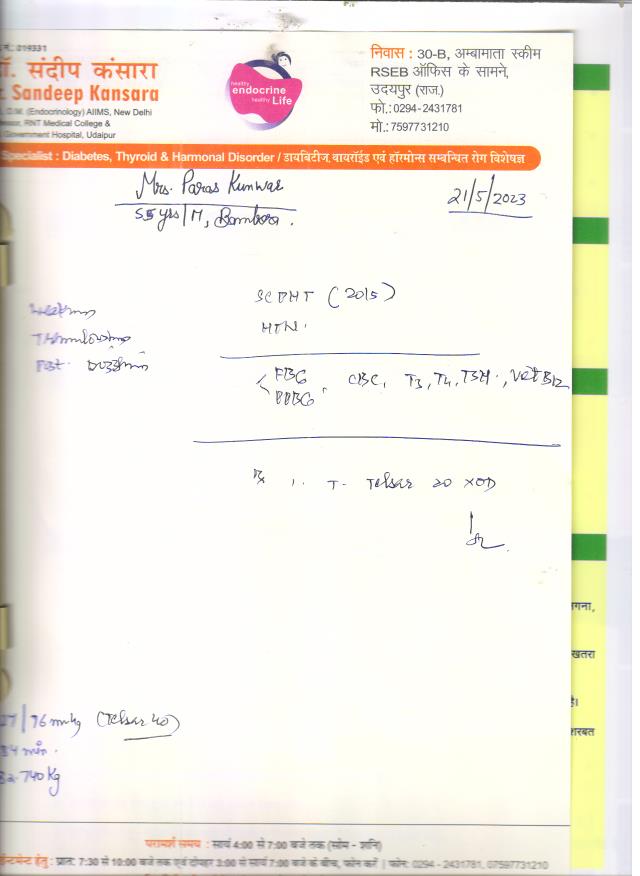 नं.: 019331
डॉ. संदीप कंसारा
Dr. Sandeep Kansara
D.M. (Endocrinology) AIIMS, New Delhi
RNT Medical College &
Government Hospital, Udaipur
healthy
endocrine
healthy Life
निवास : 30-B, अम्बामाता स्कीम
RSEB ऑफिस के सामने,
उदयपुर (राज.)
फो.:0294-2431781
मो.:7597731210
Specialist : Diabetes, Thyroid & Harmonal Disorder / डायबिटीज, थायरॉईड एवं हॉरमोन्स सम्बन्धित रोग विशेषज्ञ
Mrs. Paras Kunwar
21/5/2023
55 yrs/
(2015)
HTN.
FBG
PPBG
CBC, T3, T4, TSH, Vit B12
Rx 1. T- Telsar 20 XOD
76 mmHg (Telsar 40)
84 min.
740 Kg
गना,
खतरा
है।
शरबत
परामर्श समय : सायं 4:00 से 7:00 बजे तक (सोम - शनि)
न्टमेन्ट हेतु : प्रातः 7:30 से 10:00 बजे तक एवं दोपहर 3:00 से सायं 7:00 बजे के बीच, फोन करें | फोन: 0294 - 2431781, 07597731210